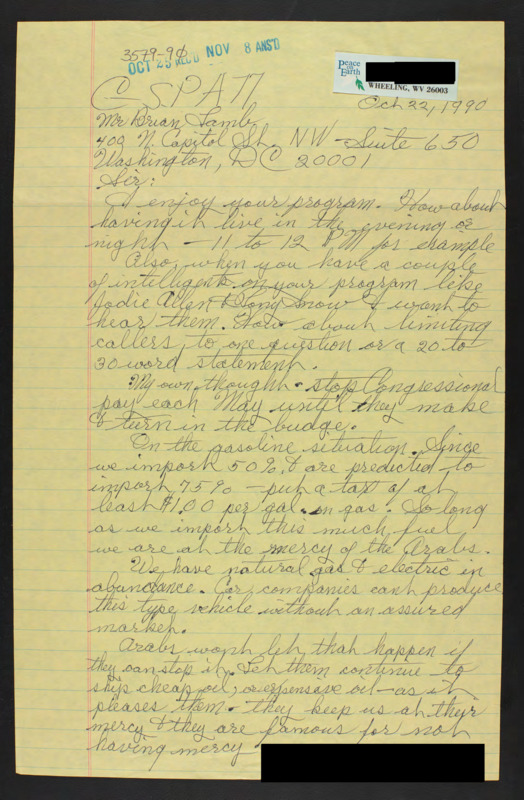 3579-90
OCT 25 REC'D NOV 8 ANS'D
Peace on Earth
WHEELING, WV 26003
C SPAN
Oct 22, 1990
Mr Brian Lamb
400 N. Capitol St. NW - Suite 650
Washington, DC 20001
Sir:
I enjoy your program. How about
having it live in the evening or
night - 11 to 12 PM for example
Also, when you have a couple
of intelligents on your program like
Jodie Allen & Tony Snow I want to
hear them. How about limiting
callers, to one question or a 20 to
30 word statement.
My own thought - stop Congressional
pay each May until they make
& turn in the budge.
On the gasoline situation. Since
we import 50% & are predicted to
import 75% - put a tax of at
least $1.00 per gal. on gas. So long
as we import this much fuel
we are at the mercy of the Arabs.
We have natural gas & electric in
abundance. Car companies cant produce
this type vehicle without an assured
market.
Arabs won't let that happen if
they can stop it. Let them continue to
ship cheap oil, or expensave oil - as it
pleases them - they keep us at their
mercy & they are famous for not
having mercy